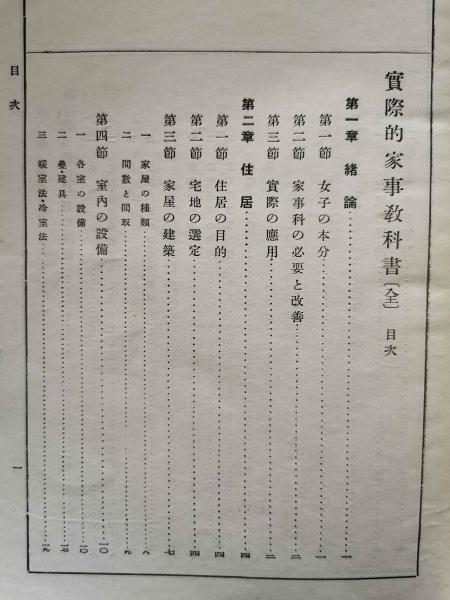 實際的家事教科書〔全〕 目次
第一章 緒論……一
第一節 女子の本分……一
第二節 家事科の必要と改善……二
第三節 實際の應用……二
第二章 住居……四
第一節 住居の目的……四
第二節 宅地の選定……四
第三節 家屋の建築……七
一 家屋の種類……八
二 間數と間取……九
第四節 室內の設備……一〇
一 各室の設備……一〇
二 疊・建具……一七
三 暖室法・冷室法……一九
目次
一